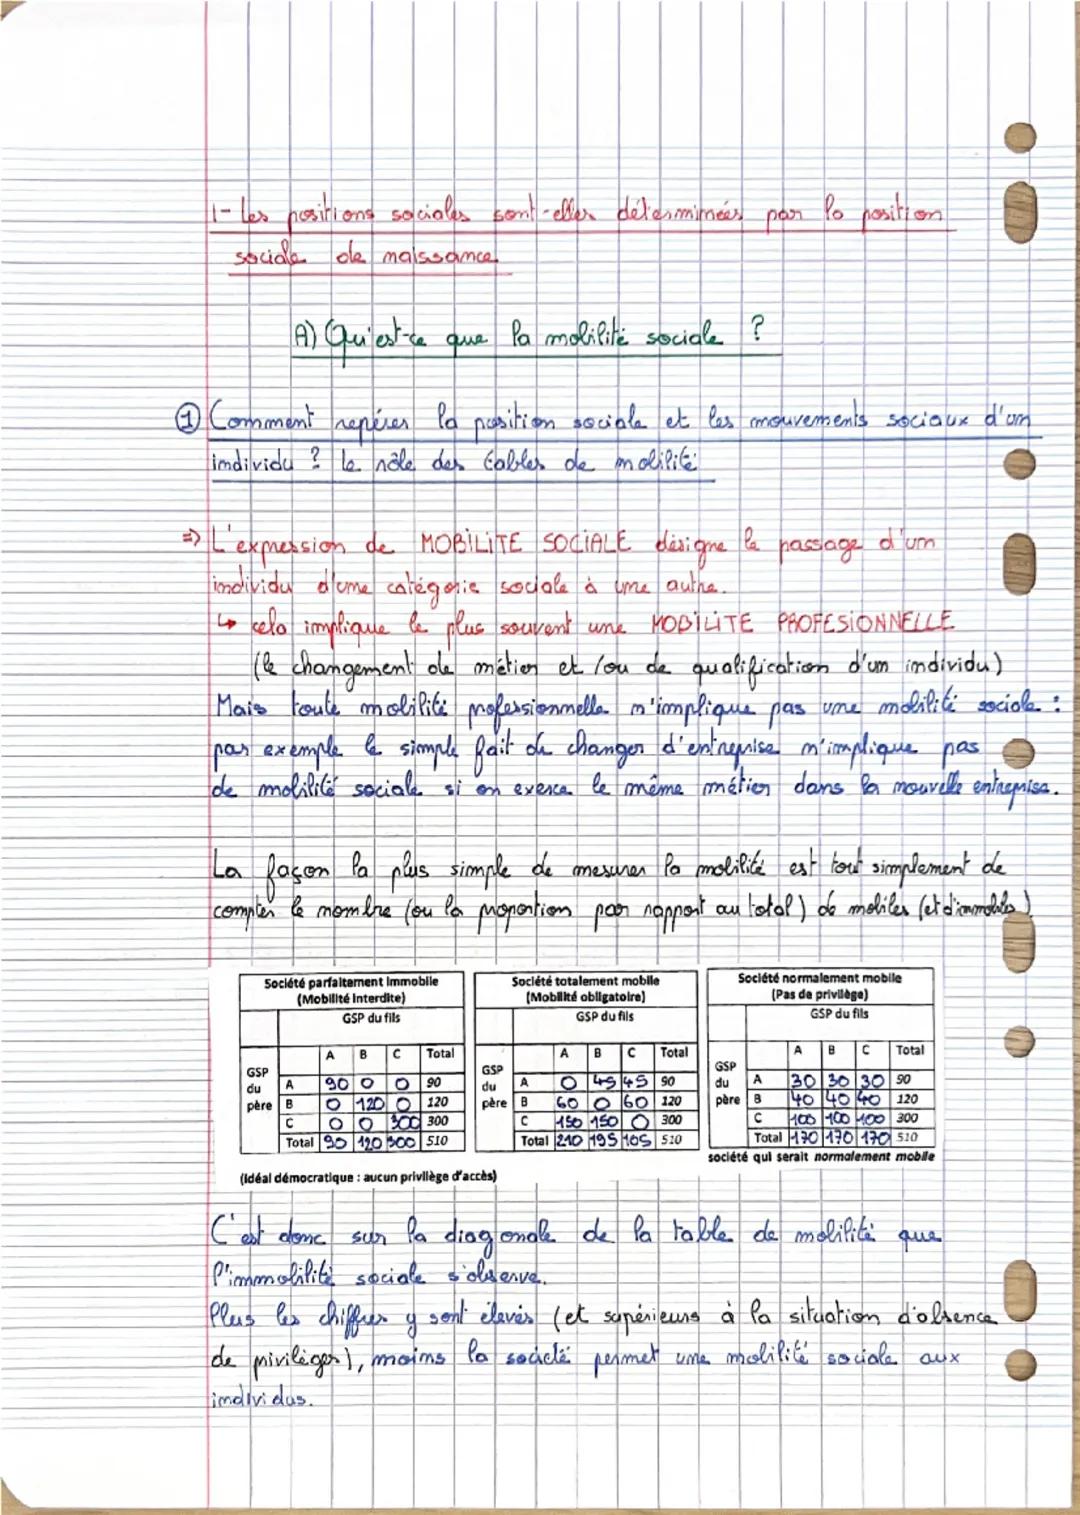 1- Les positions sociales sont-elles déterminées par la position
sociale de naissance
A) Qu'est-ce que la mobilité sociale ?
① Comment repérer la position sociale et les mouvements sociaux d'un
individu ? Le rôle des tables de mobilité
=> L'expression de MOBILITE SOCIALE désigne le passage d'un
individu d'une catégorie sociale à une autre.
↳ cela implique le plus souvent une MOBILITE PROFESIONNELLE
(le changement de métier et /ou de qualification d'un individu)
Mais toute mobilité professionnelle n'implique pas une mobilité sociale :
par exemple le simple fait de changer d'entreprise n'implique pas
de mobilité sociale si on exerce le même métier dans la nouvelle entreprise.
La façon la plus simple de mesurer la mobilité est tout simplement de
compter le nombre (ou la proportion par rapport au total) de mobiles (et d'immobiles)
Société parfaitement immobile
(Mobilité Interdite)
GSP du fils
A B C Total
GSP du père
A 90 0 0 90
B 0 120 0 120
C 0 0 300 300
Total 90 120 300 510
Société totalement mobile
(Mobilité obligatoire)
GSP du fils
A B C Total
GSP du père
A 0 45 45 90
B 60 0 60 120
C 150 150 0 300
Total 210 195 105 510
Société normalement mobile
(Pas de privilège)
GSP du fils
A B C Total
GSP du père
A 30 30 30 90
B 40 40 40 120
C 100 100 100 300
Total 170 170 170 510
société qui serait normalement mobile
(Idéal démocratique : aucun privilège d'accès)
C'est donc sur la diagonale de la table de mobilité que
l'immobilité sociale s'observe.
Plus les chiffres y sont élevés (et supérieurs à la situation d'absence
de privilèges), moins la société permet une mobilité sociale aux
individus.